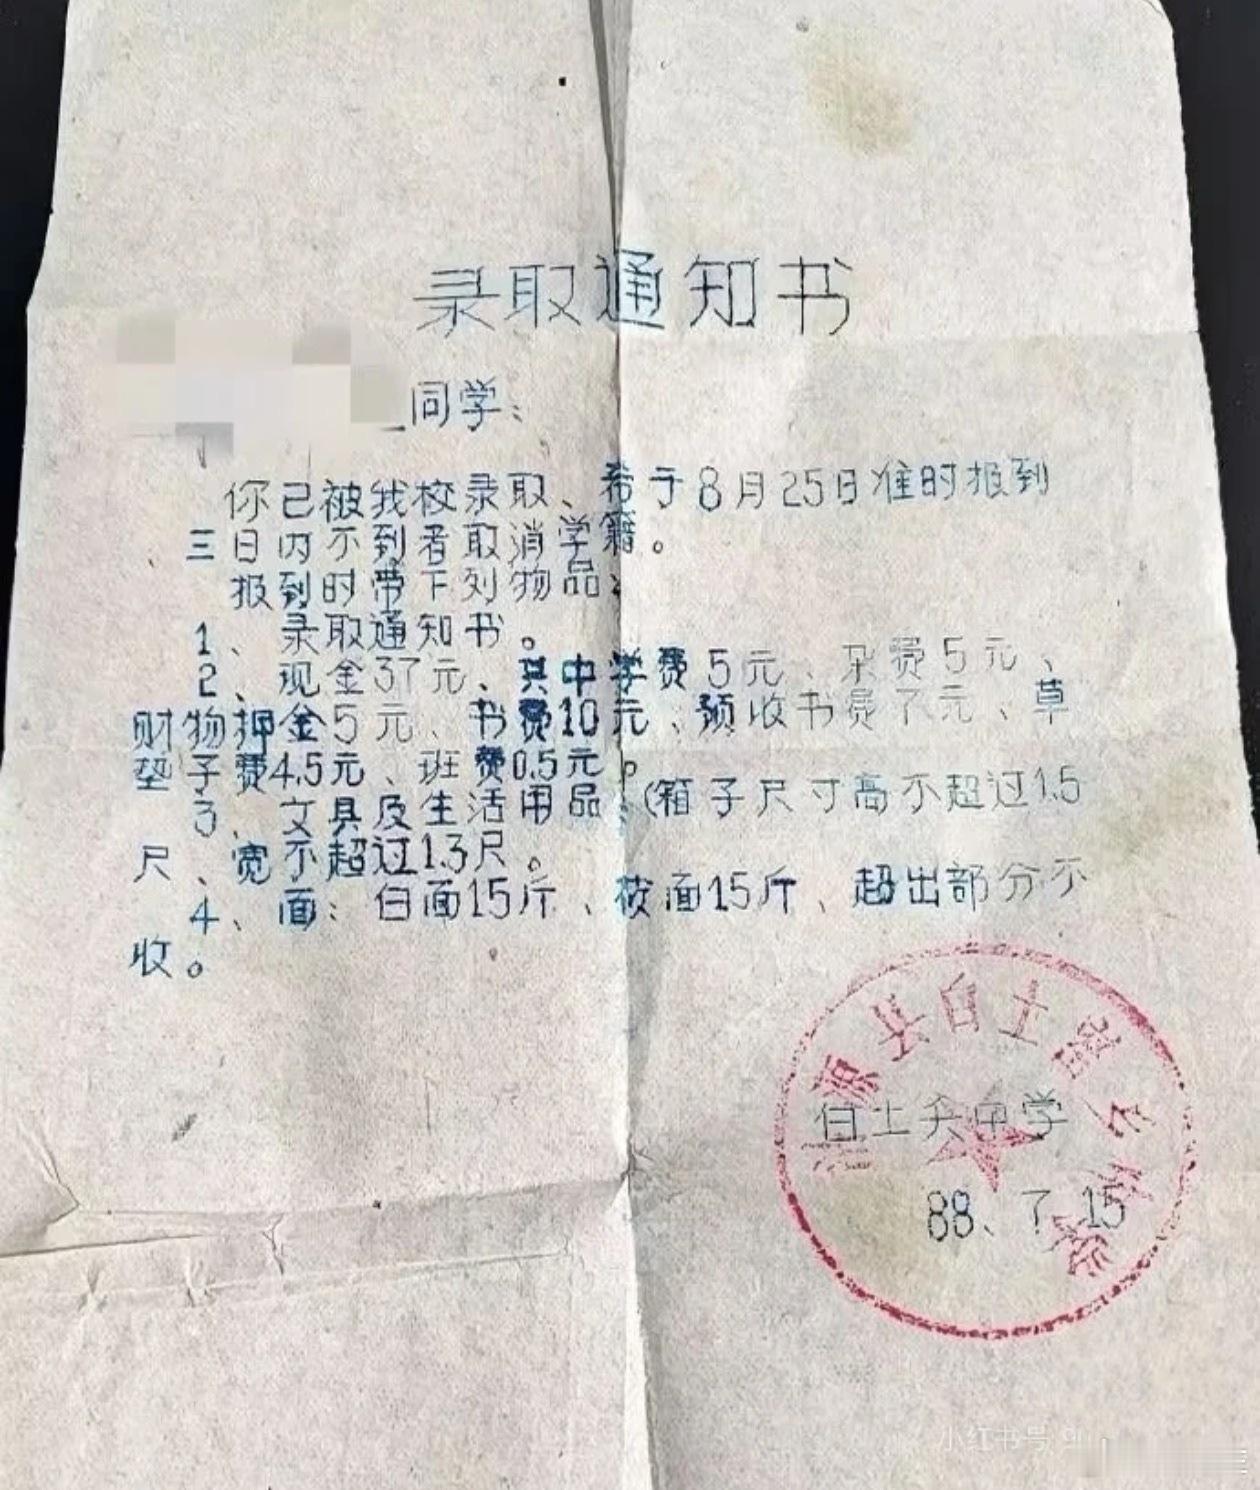 录取通知书
同学：
你已被我校录取、希于8月25日准时报到
三日内不到者取消学籍。
报到时带下列物品：
1、录取通知书。
2、现金37元、其中学费5元、杂费5元、
财物押金5元、书费10元、预收书费7元、草
垫子费4.5元、班费0.5元。
3、文具及生活用品：(箱子尺寸高不超过1.5
尺、宽不超过1.3尺。
4、面：白面15斤、莜面15斤、超出部分不
收。
源县白土窑
白土窑中学
88、7、15
小红书号